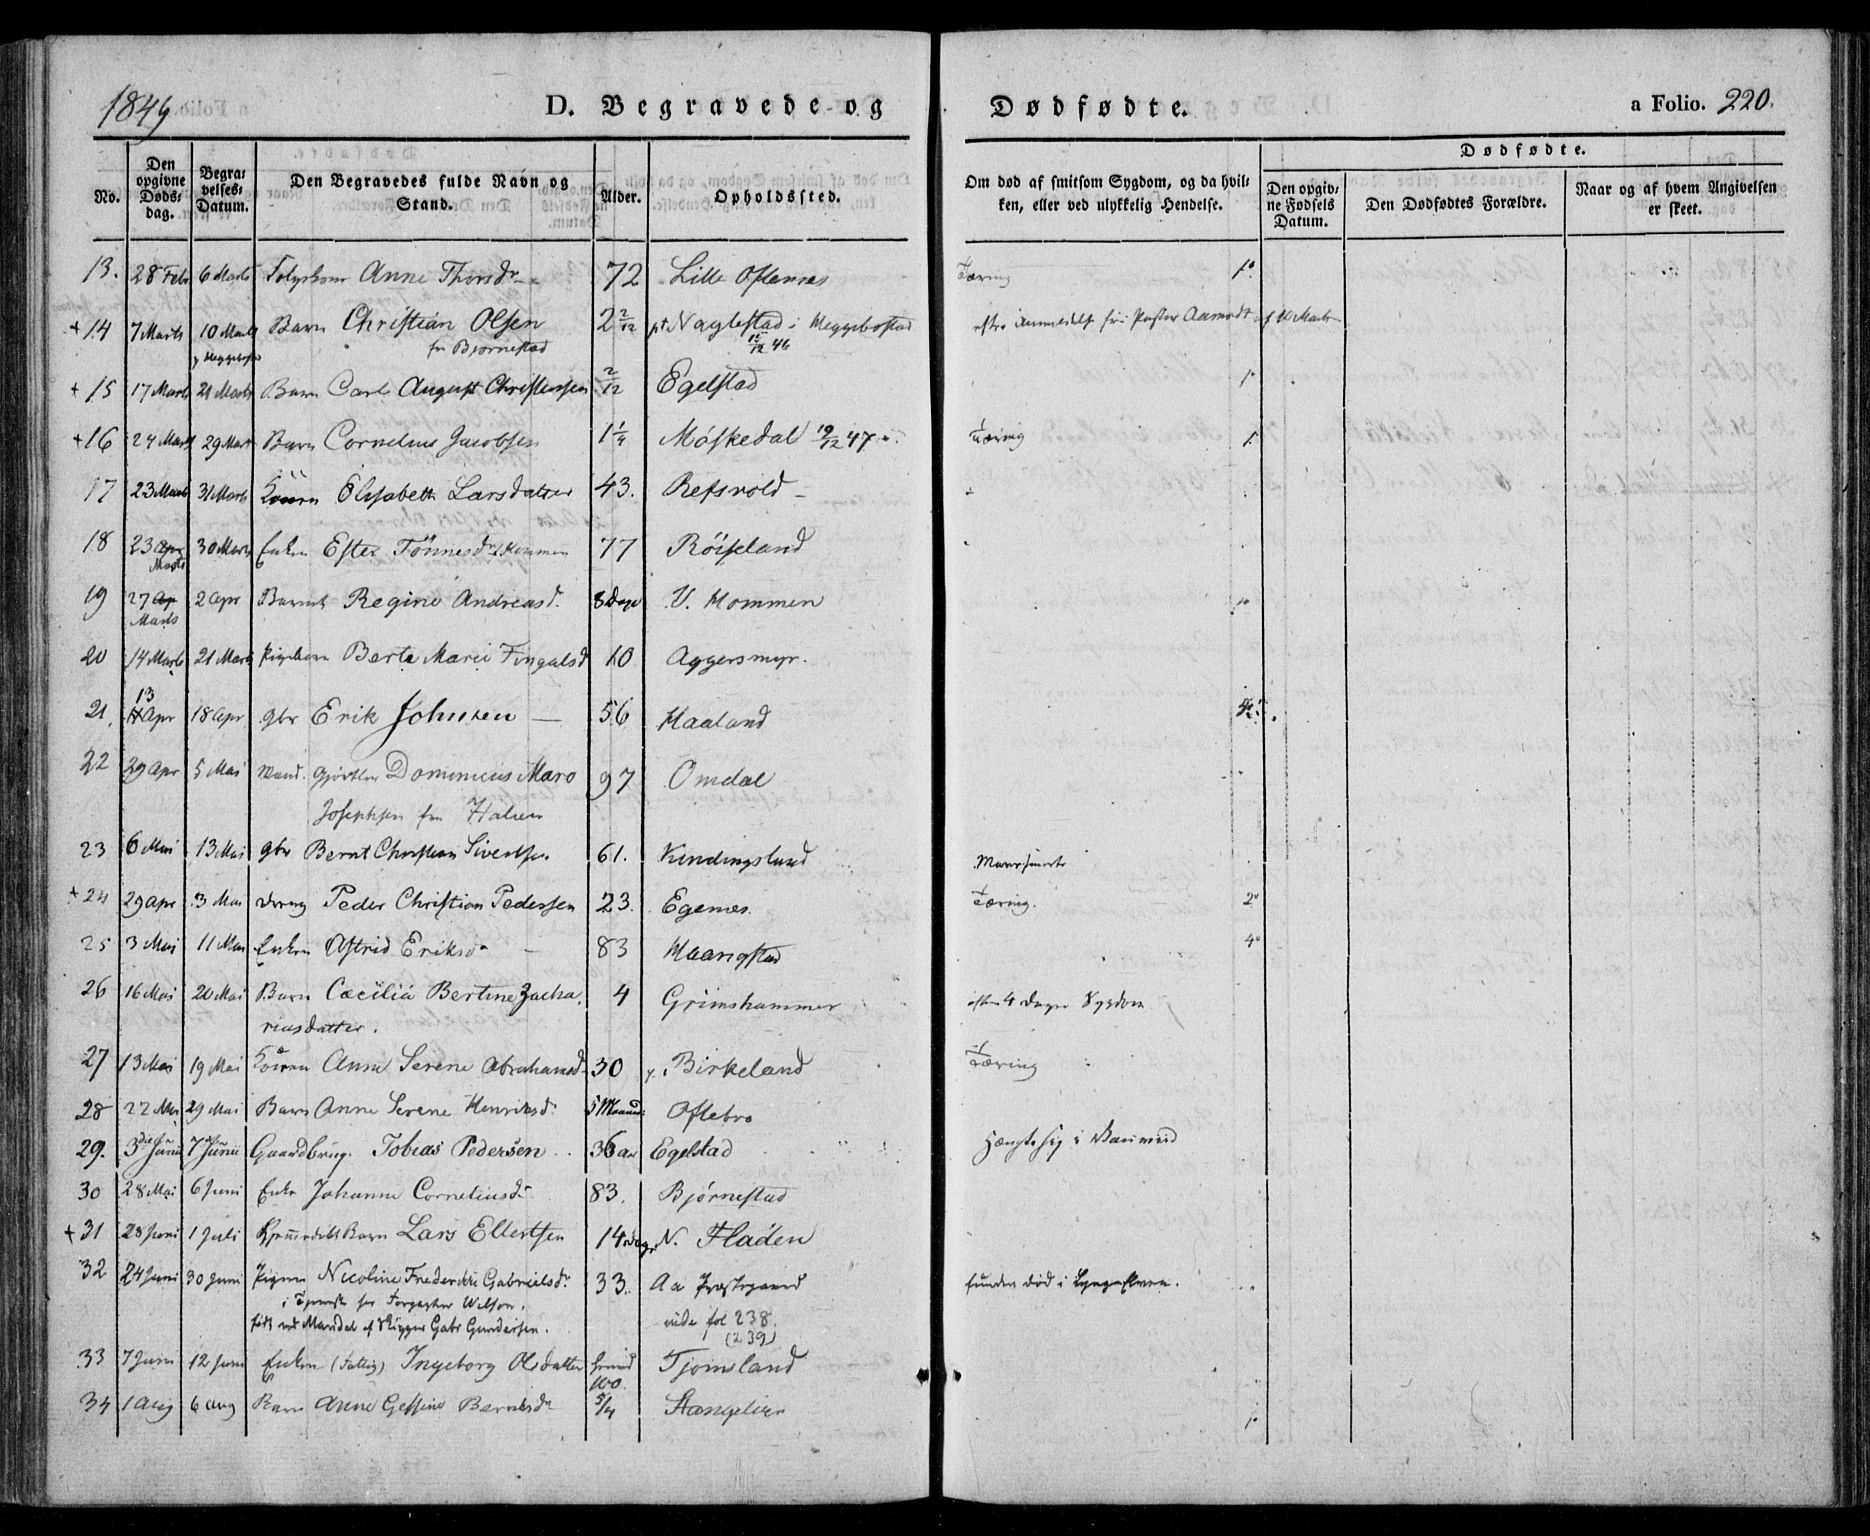 1849
D. Begravede og Dødfødte.
a Folio. 220.
No.
Den opgivne Døds-dag.
Begra-velses-Datum.
Den Begravedes fulde Navn og Stand.
Alder.
Opholdssted.
Om død af smitsom Sygdom, og da hvil-ken, eller ved ulykkelig Hendelse.
Dødfødte.
Den opgiv-ne Fødsels Datum.
Den Dødfødtes Forældre.
Naar og af hvem Angivelsen er skeet.
13. 28 Febr 6 Marts Anne Thorsdr 72 Lille Oftenæs Tæring 1º
+ 14 7 Marts 10 Marts Barn Christian Olsen 2 2/12 Naglestad i Heggebostad
fra Bjørnestad
+ 15 17 Marts 21 Marts Barn Carl August Christensen 2/12 Egelstad 1º
+ 16 24 Marts 29 Marts Barn Cornelius Jacobsen 1 1/4 Møskedal 19/12 47 Tæring 1.
17 23 Marts 31 Marts Konen Elisabeth Larsdatter 43. Refsvold
18 23 Apr Marts 30 Marts Enken Ester Tönnesdr Hommen 77 Röiseland
19 27 Ap Marts 2 Apr Barnet Regine Andreasd. 8 Dage V. Hommen 1º
20 14 Marts 21 Marts Pigebarn Berte Marie Fingalsd 10 Aggersmyr.
21. 13 Apr 18 Apr gbr Erik Johnsen 56 Haaland
22 29 Apr 5 Mai Gjørtler Dominicus Maro 97 Omdal
Josephsen fra Halsen
23 6 Mai 13 Mai gbr Bernt Christian Sivertsen 61. Kindingsland
+ 24 29 Apr 3 Mai dreng Peder Christian Pedersen 23. Egenæs. Tæring. 2º
25 3 Mai 11 Mai Enken Astrid Eriksdr 83 Haangstad 4º
26 16 Mai 20 Mai Barn Cæcilia Bertine Zacha 4 Grimshammer efter 4 Dages Sygdom
riasdatter.
27 13 Mai 19 Mai Konen Anne Serene Abrahamsd 30 Birkeland Tæring
28 22 Mai 29 Mai Barn Anne Serene Henriksd. 5 Maaned Oftebro
29. 3die Junii 7de Junii Gaardbrug. Tobias Pedersen 36 aar Egelstad Hængte sig i Vanvid
30 28 Mai 6 Juni Enke Johanne Corneliusdr 83. Bjørnestad
+ 31 28 Juni 1 Juli Hjemmedøbt Barn Lars Ellertsen 14 dage N. Fladen
32 24 Juni 30 Juni Pigen Nicoline Frederikke Gabrielsdr 33. Aa Præstegaard funden død i Lyngelven.
i Tjeneste hos Wilson.
født ved Mandal af Skipper Gabr Gundersen. vide fol 238.
(239)
33 7 Juni 12 Juni Enken (Fattig) Ingeborg Olsdatter 100 Tjomsland
34 1 Aug 6 Aug Barn Anne Gessine Berntsdr 5/4 Stangelien 1º